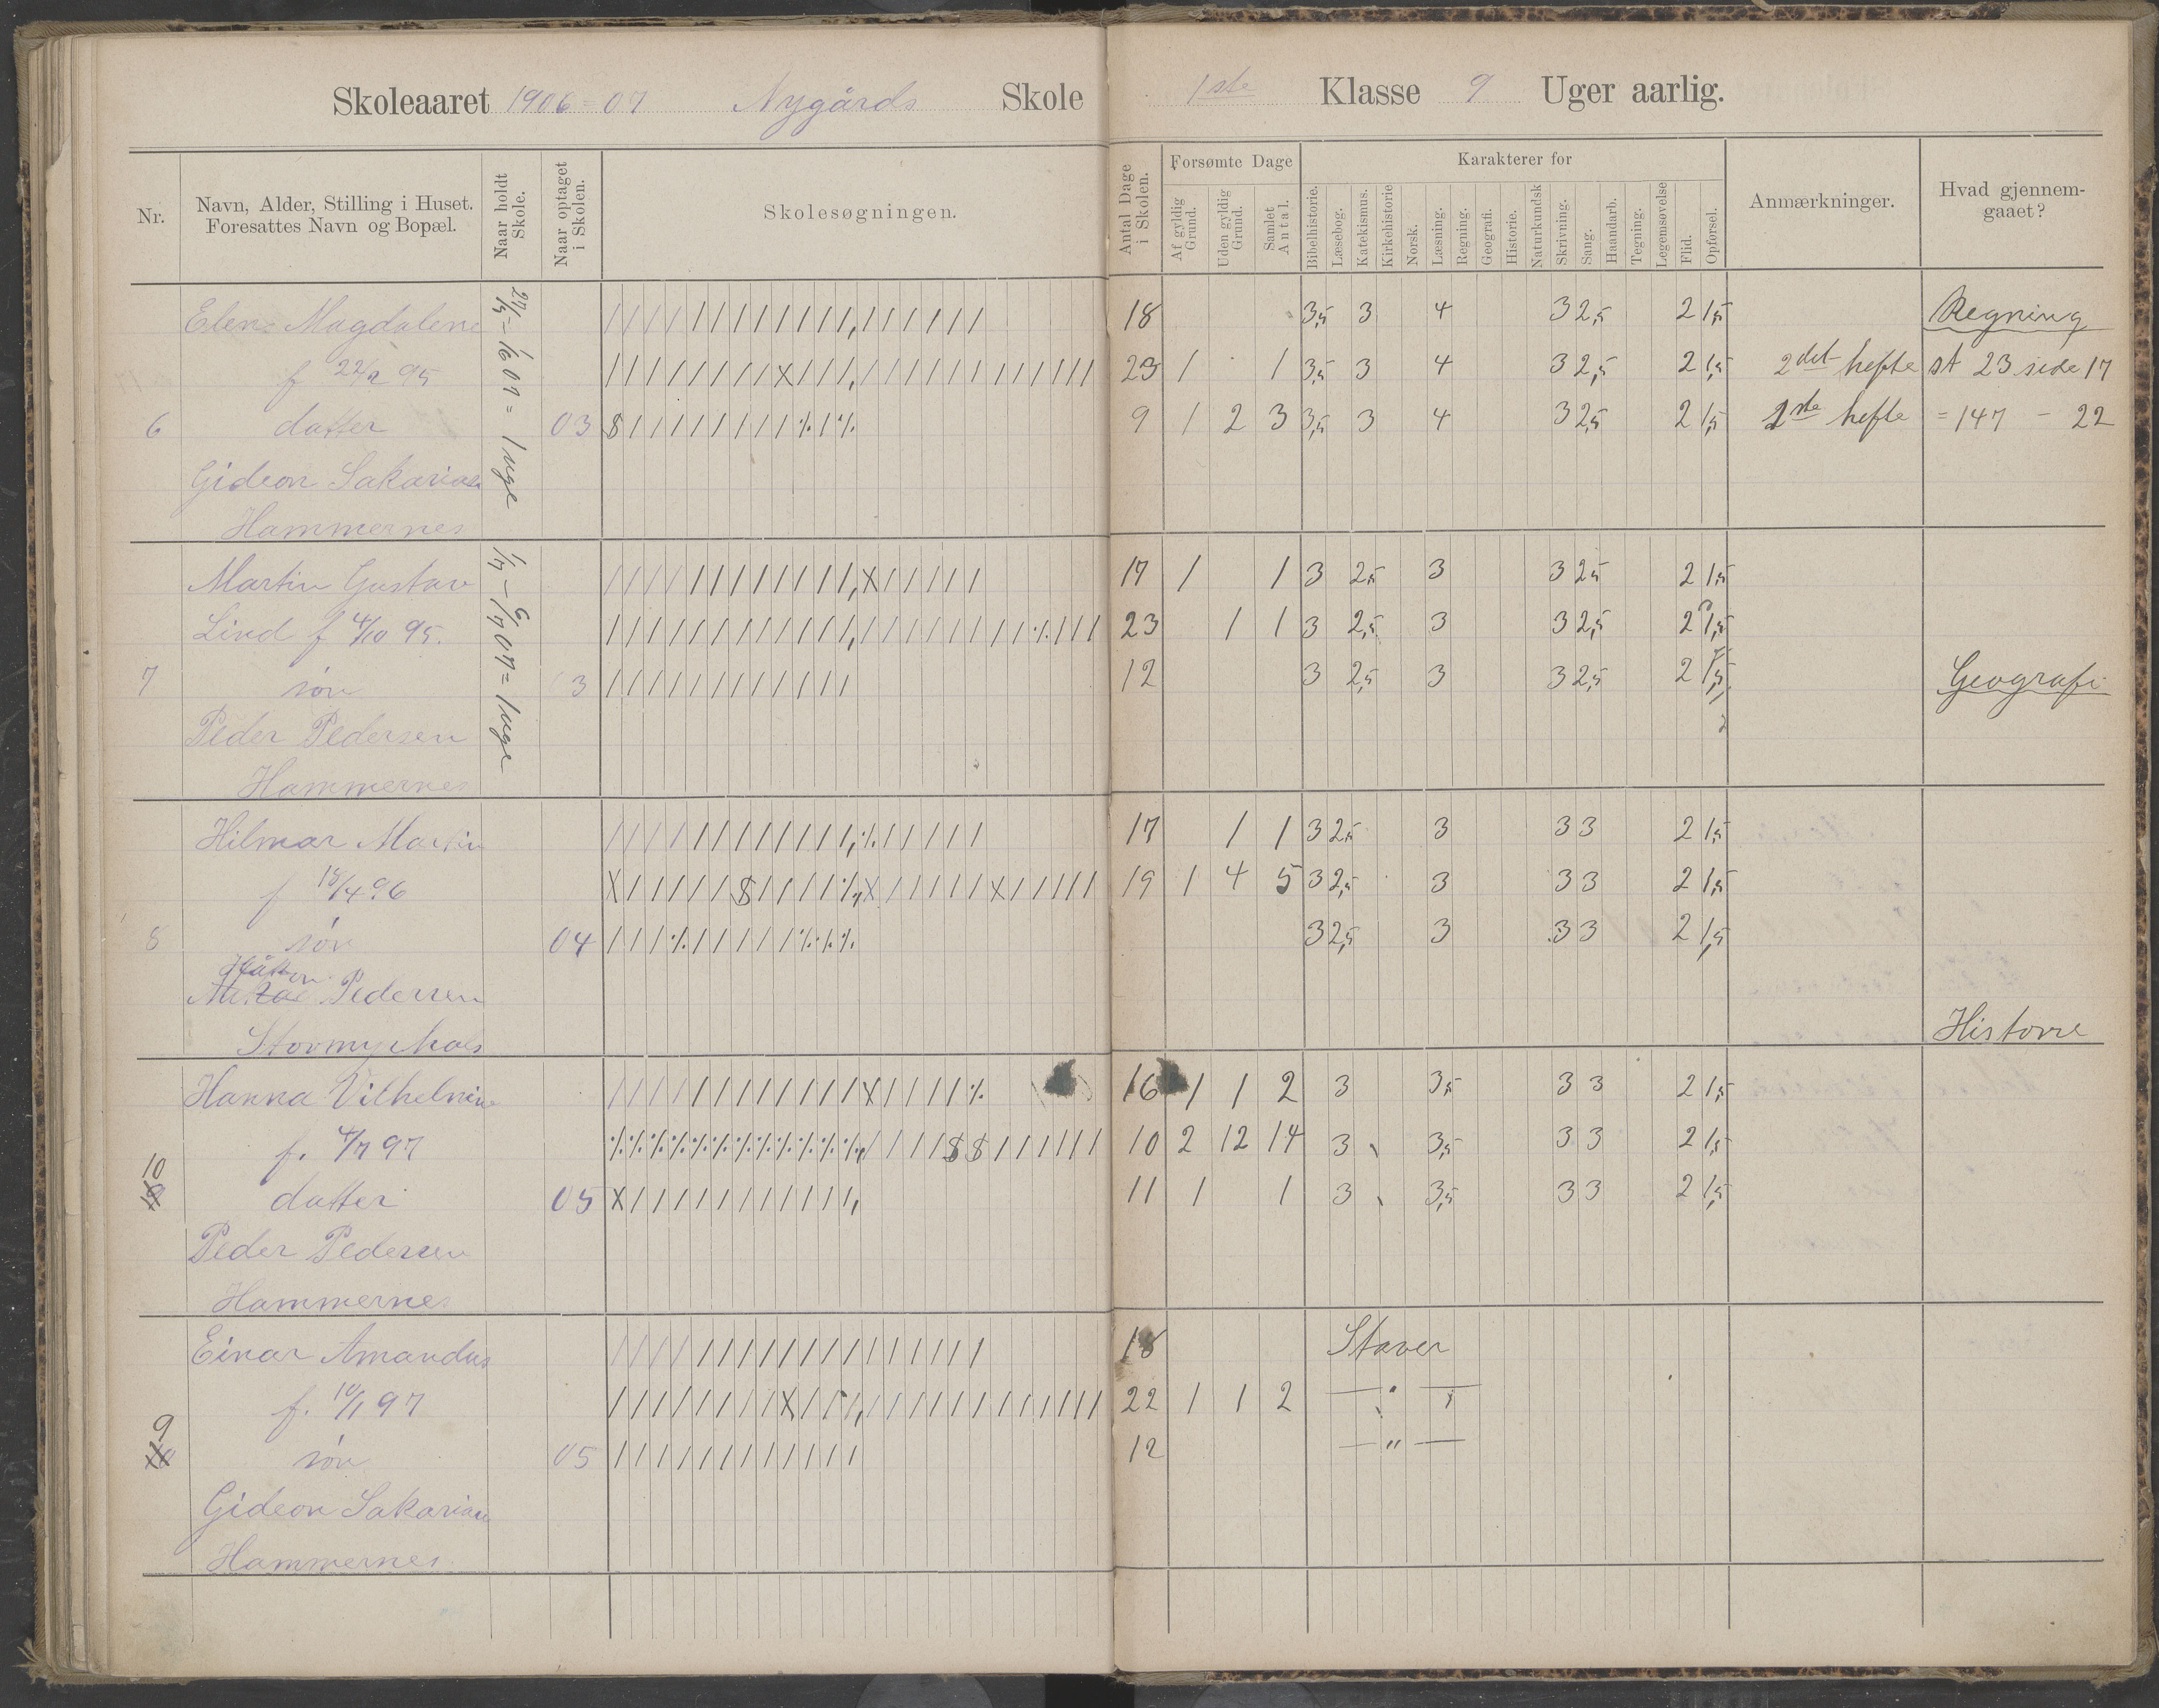 Skoleaaret 1906=07 Nygårds Skole 1ste Klasse 9 Uger aarlig.
Nr.
Navn, Alder, Stilling i Huset.
Foresattes Navn og Bopæl.
Naar holdt
Skole.
Naar optaget
i Skolen.
Skolesøgningen.
Antal Dage
i Skolen.
Forsømte Dage
Af gyldig
Grund.
Uden gyldig
Grund.
Samlet
Antal.
Karakterer for
Bibelhistorie.
Læsebog.
Katekismus.
Kirkehistorie
Norsk.
Læsning.
Regning.
Geografi.
Historie.
Naturkundsk
Skrivning.
Sang.
Haandarb.
Tegning.
Legemsøvelse
Flid.
Opførsel.
Anmærkninger.
Hvad gjennem-
gaaet?
Elen Magdalene 18 3,5 3 4 3 2,5 2 1,5 Regning
f 22/2 95 23 1 1 3,5 3 4 3 2,5 2 1,5 2det hefte st 23 side 17
6 datter 03 9 1 2 3 3,5 3 4 3 2,5 2 1,5 1ste hefte = 147 - 22
Gideon Sakarias
Hammernes
Martin Gustav 17 1 1 3 2,5 3 3 2,5 2 1,5
Lind f 4/10 95. 23 1 1 3 2,5 3 3 2,5 2 1,5
7 søn 3 12 3 2,5 3 3 2,5 2 1,5 Geografi
Peder Pedersen
Hammernes
1/7 - 6/7 07 = 1 uge
Hilmar Martin 17 1 1 3 2,5 3 3 3 2 1,5
f 18/4 96 19 1 4 5 3 2,5 3 3 3 2 1,5
8 søn 04 3 2,5 3 3 3 2 1,5
Håkon
Pedersen
Historie
Hanna Vilhelmine 16 1 1 2 3 3,5 3 3 2 1,5
f. 4/7 97 10 2 12 14 3 3,5 3 3 2 1,5
10
9 datter 05 11 1 1 3 3,5 3 3 2 1,5
Peder Pedersen
Hammernes
Einar Amandus 18 Staver
f. 10/1 97 22 1 1 2 — " —
9
10 søn 05 12 — " —
Gideon Sakarias
Hammernes